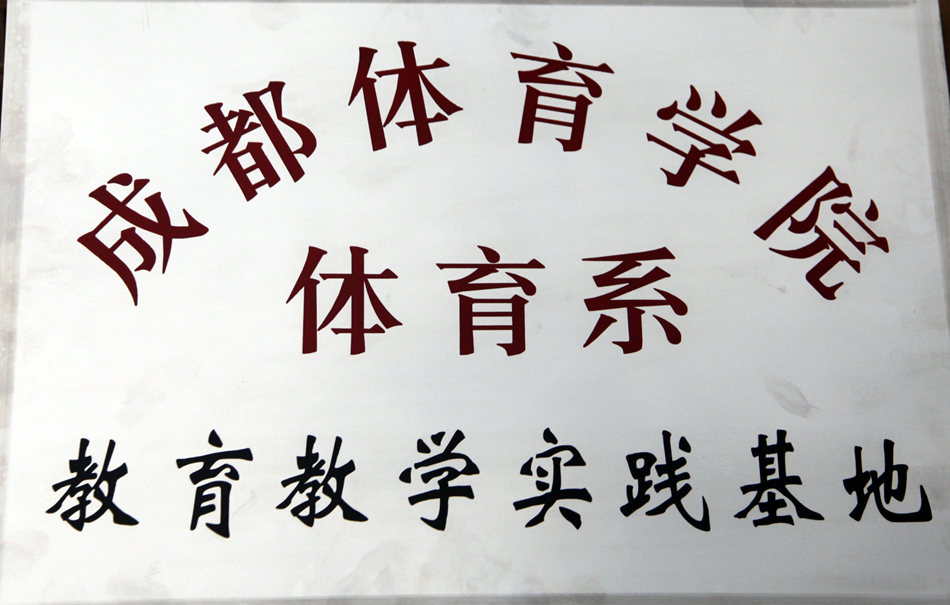 成都体育学院
体育系
教育教学实践基地